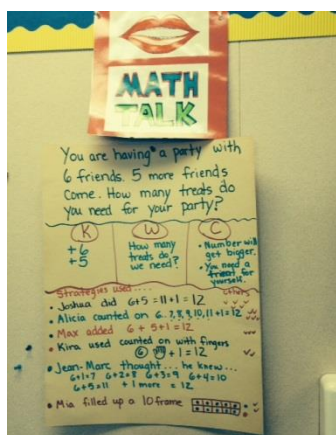 MATH
TALK
You are having a party with
6 friends. 5 more friends
come. How many treats do
you need for your party?
K W C
+6
+5
How many
treats do
we need?
• Number will
get bigger.
• You need a
treat for
yourself.
Strategies used....
others
• Joshua did 6+5=11+1=12
• Alicia counted on 6..7,8,9,10,11+1=12
• Max added 6+5+1=12
• Kira used counted on with fingers
6 +1=12
• Jean-Marc thought... he knew...
6+1=7 6+2=8 6+3=9 6+4=10
6+5=11 +1 more = 12
• Mia filled up a 10 frame